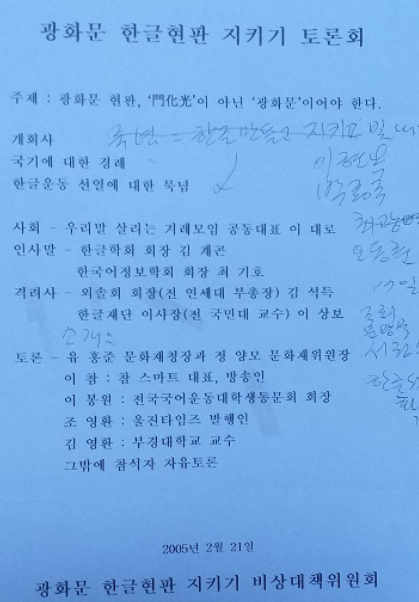 광화문 한글현판 지키기 토론회
주제 : 광화문 현판, '門化光'이 아닌 '광화문'이어야 한다.
개회사
국기에 대한 경례
한글운동 선열에 대한 묵념
사회 - 우리말 살리는 겨레모임 공동대표 이 대로
인사말 - 한글학회 회장 김 계곤
한국어정보학회 회장 최 기호
격려사 - 외솔회 회장(전 연세대 부총장) 김 석득
한글재단 이사장(전 국민대 교수) 이 상보
소개
토론 - 유 홍준 문화재청장과 정 양모 문화재위원장
이 참 : 참 스마트 대표, 방송인
이 봉원 : 전국국어운동대학생동문회 회장
조 영환 : 울진타임즈 발행인
김 영환 : 부경대학교 교수
그밖에 참석자 자유토론
2005년 2월 21일
광화문 한글현판 지키기 비상대책위원회